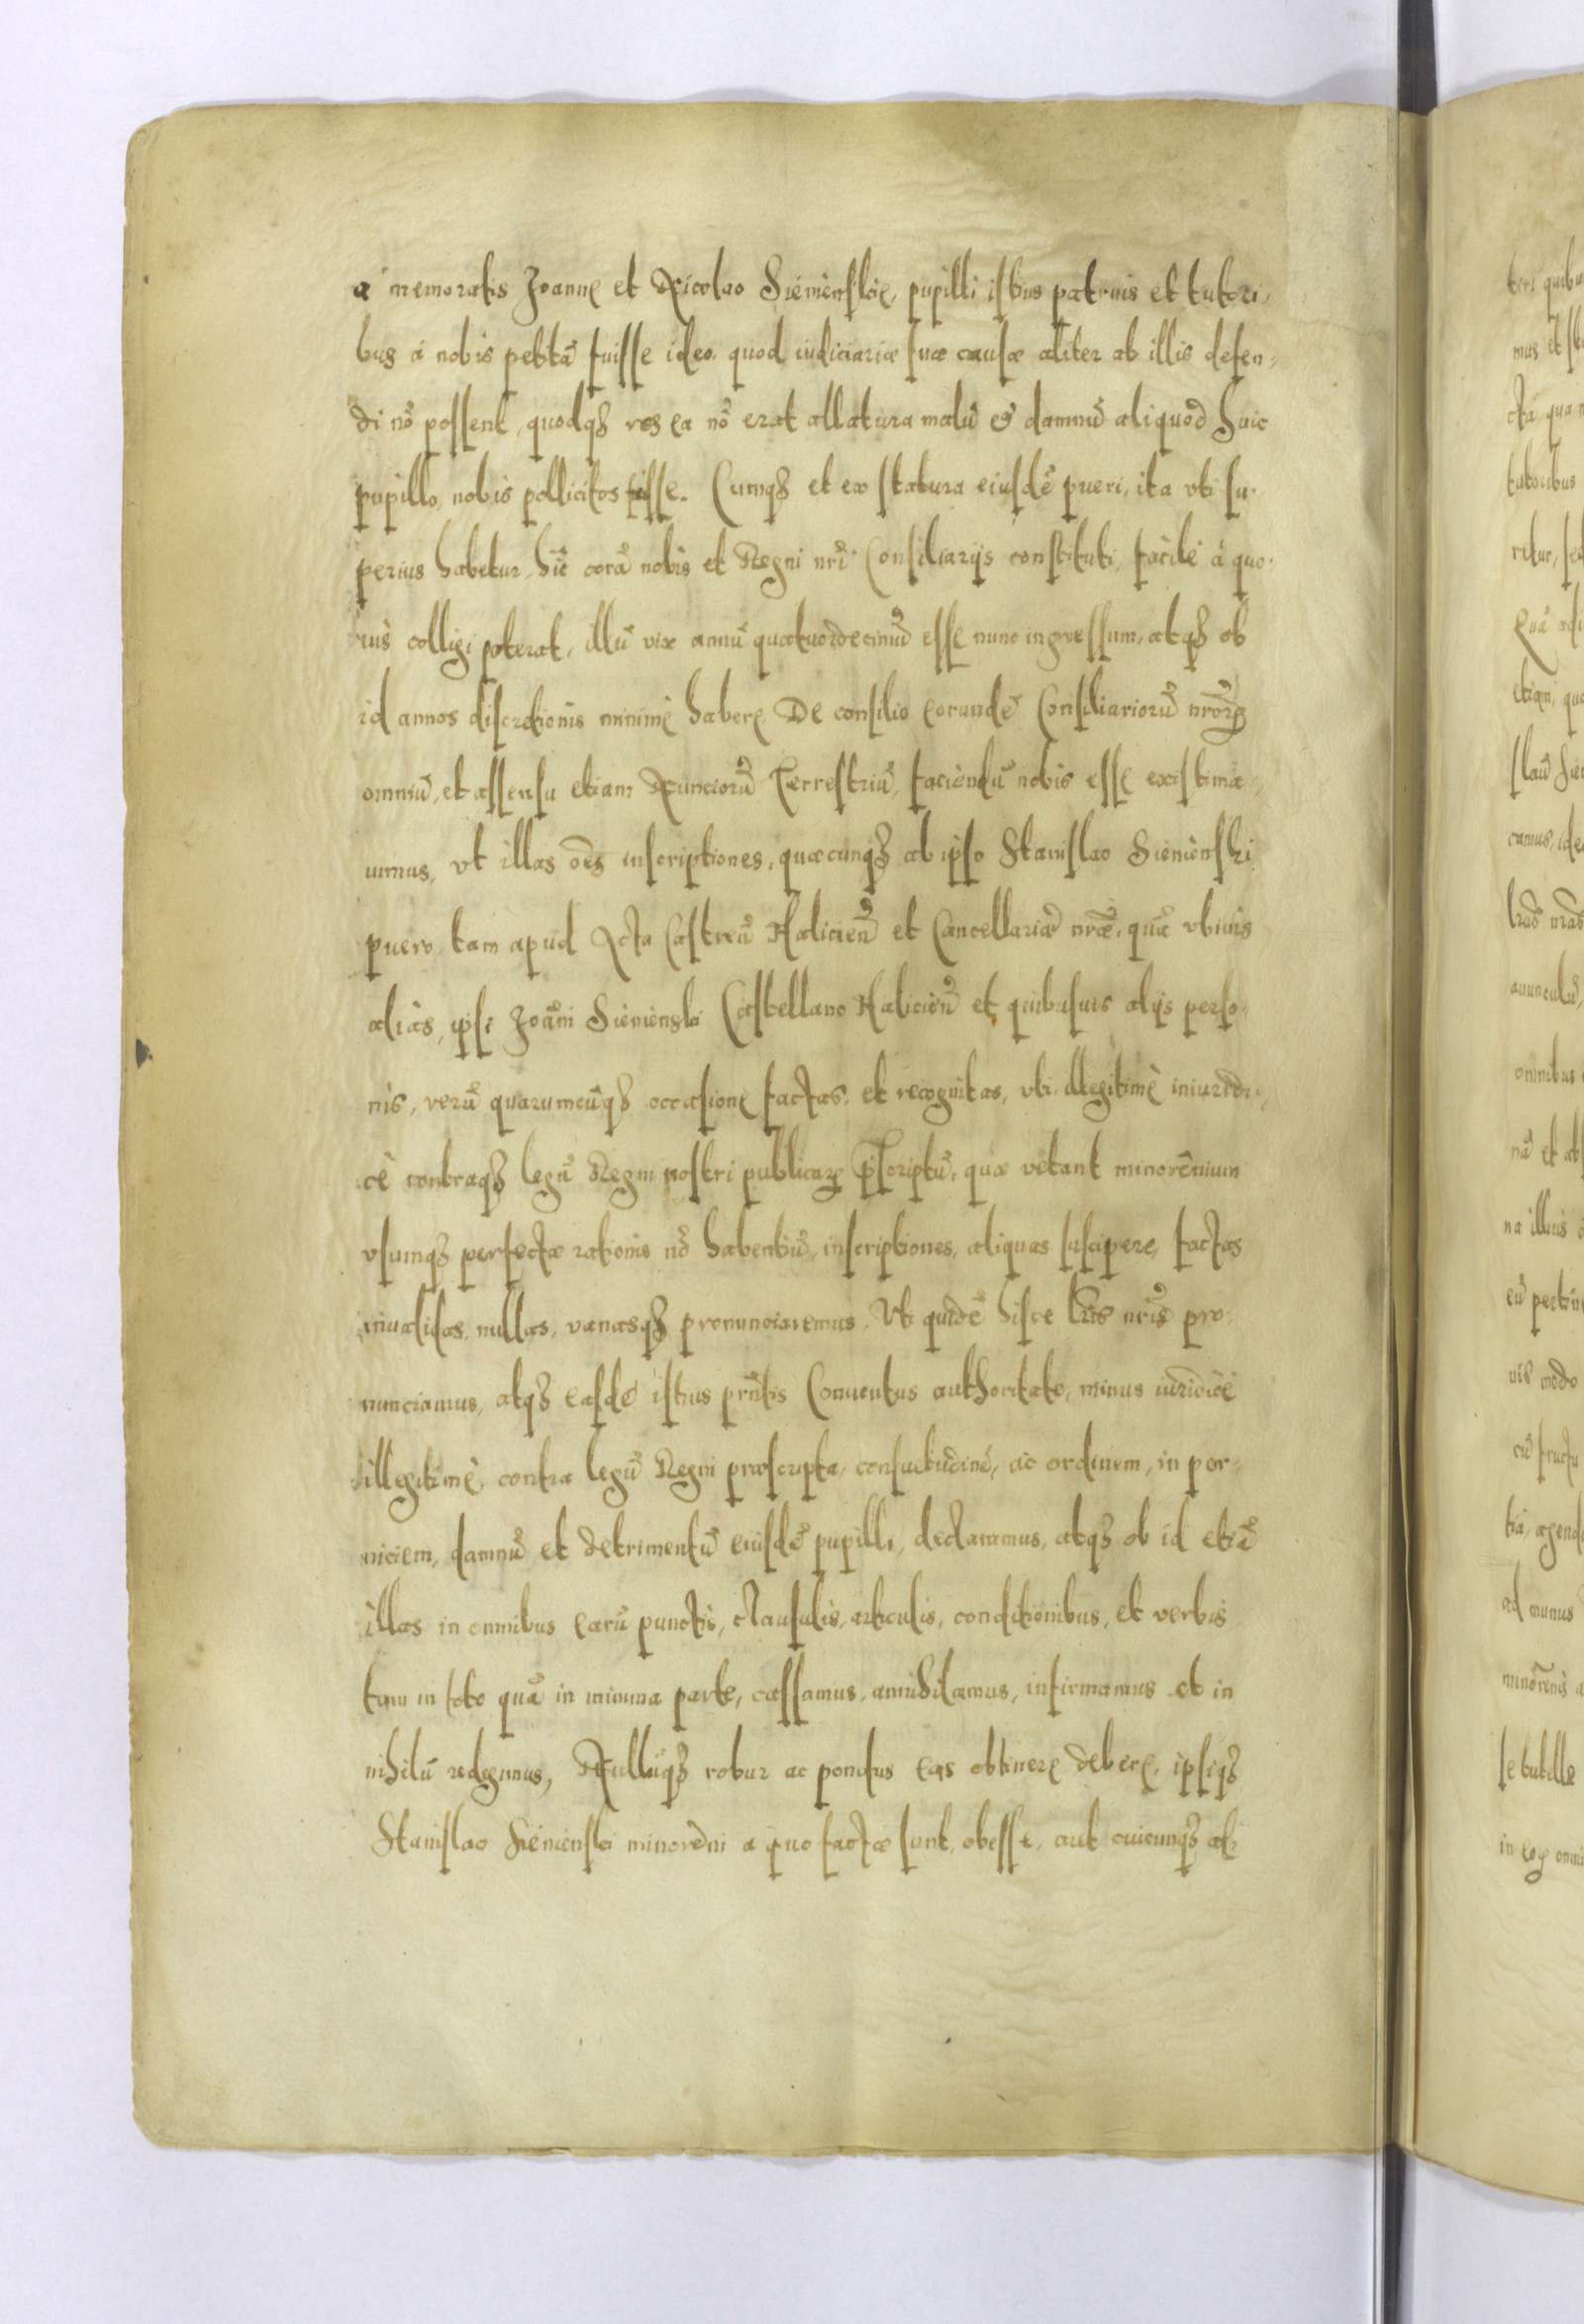 à memoratis Joanne et Nicolao Sienienskie, pupilli istius patruis et tutori,
bus à nobis petitã fuisse ideo, quod iudiciariæ suæ causæ aliter ab illis defen,
di nõ possent, quodqꝫ res ea nõ erat allatura malũ et damnũ aliquod huic
pupillo, nobis pollicitos esse. Cumqꝫ et ex statura eiusdẽ pueri, ita vti su,
perius habetur, hîc corã nobis et Regni nr̃i Consiliarijs constituti, facilè à quo,
uis colligi poterat, illũ vix annũ quatuordecimũ esse nunc ingressum, atqꝫ ob
id annos discretionis minimè habere. De consilio eorundẽ Consiliariorũ nr̃orꝝ
omniũ, et assensu etiam Nunciorũ Terrestriũ, faciendũ nobis esse existima,
uimus, vt illas oẽs inscriptiones, quæcunqꝫ ab ipso Stanislao Sienienski
puero, tam apud Acta Castreñ Halicieñ et Cancellariã nr̃ã, quã vbiuis
aliàs, ipsi Joãni Sienienski Castellano Halicieñ et quibusuis alijs perso,
nis, verũ quarumcũqꝫ occasione factas, et recognitas, vti illegitimè iniuridi,
cè contraqꝫ legũ Regni nostri publicarꝝ p̃scriptũ, quæ vetant minorẽnium
vsumqꝫ perfectæ rationis nõ habentiũ, inscriptiones, aliquas suscipere, factas
inualidas, nullas, vanasqꝫ pronunciaremus. Vti quidẽ hisce lr̃is nr̃is pro,
nunciamus, atqꝫ easdẽ istius pr̃ntis Conuentus authoritate, minus iuridicè
illegitimè, contra legũ Regni præscripta, consuetudinẽ, ac ordinem, in per,
niciem, damnũ et detrimentũ eiusdẽ pupilli, declaramus, atqꝫ ob id etiã
illas in omnibus earũ punctis, clausulis, articulis, conditionibus, et verbis
tam in toto quã in minima parte, cassamus, annihilamus, infirmamus et in
nihilũ redigimus, Nullũqꝫ robur ac pondus eas obtinere debere, ipsiqꝫ
Stanislao Sienienski minorẽni a quo factæ sunt, obesse, aut cuicunqꝫ al,